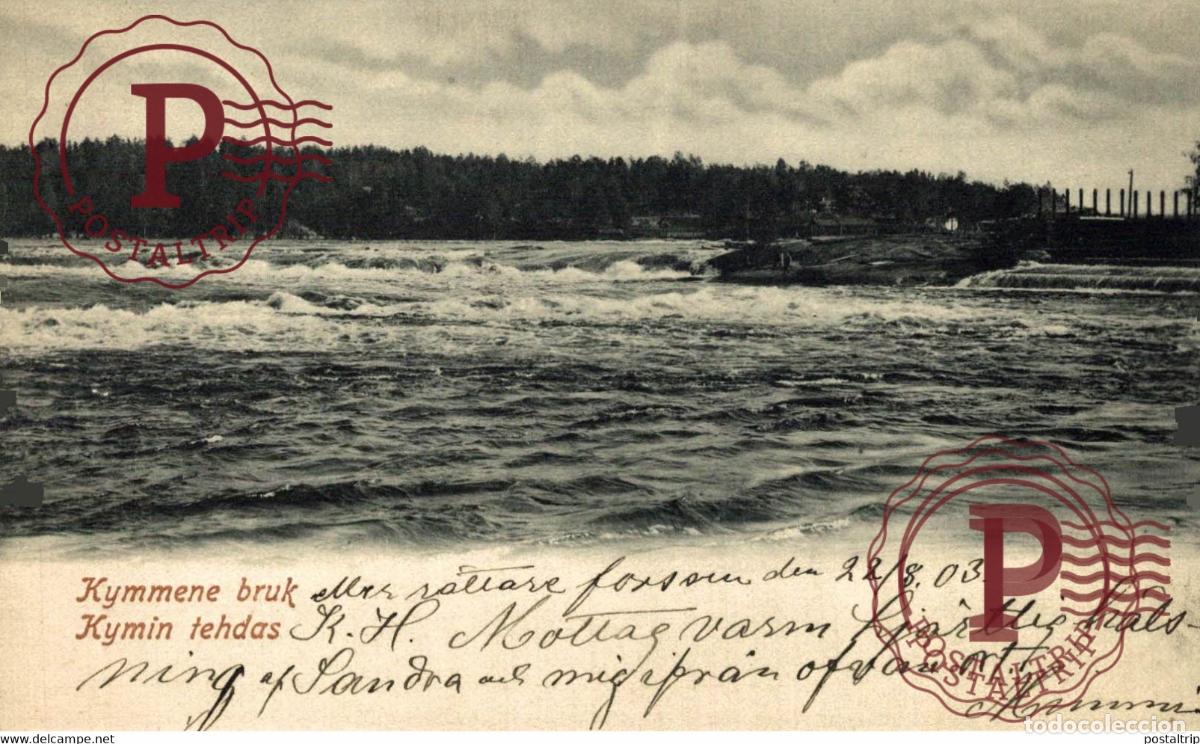 P
POSTALTRIP
Kymmene bruk
Kymin tehdas
rättare forssen den 22/8. 03.
K. H. Mottag varm hjärtlig häls-
ning af Sandra och mig ifrån ofvan ort
P
POSTALTRIP
todocoleccion
www.delcampe.net
postaltrip